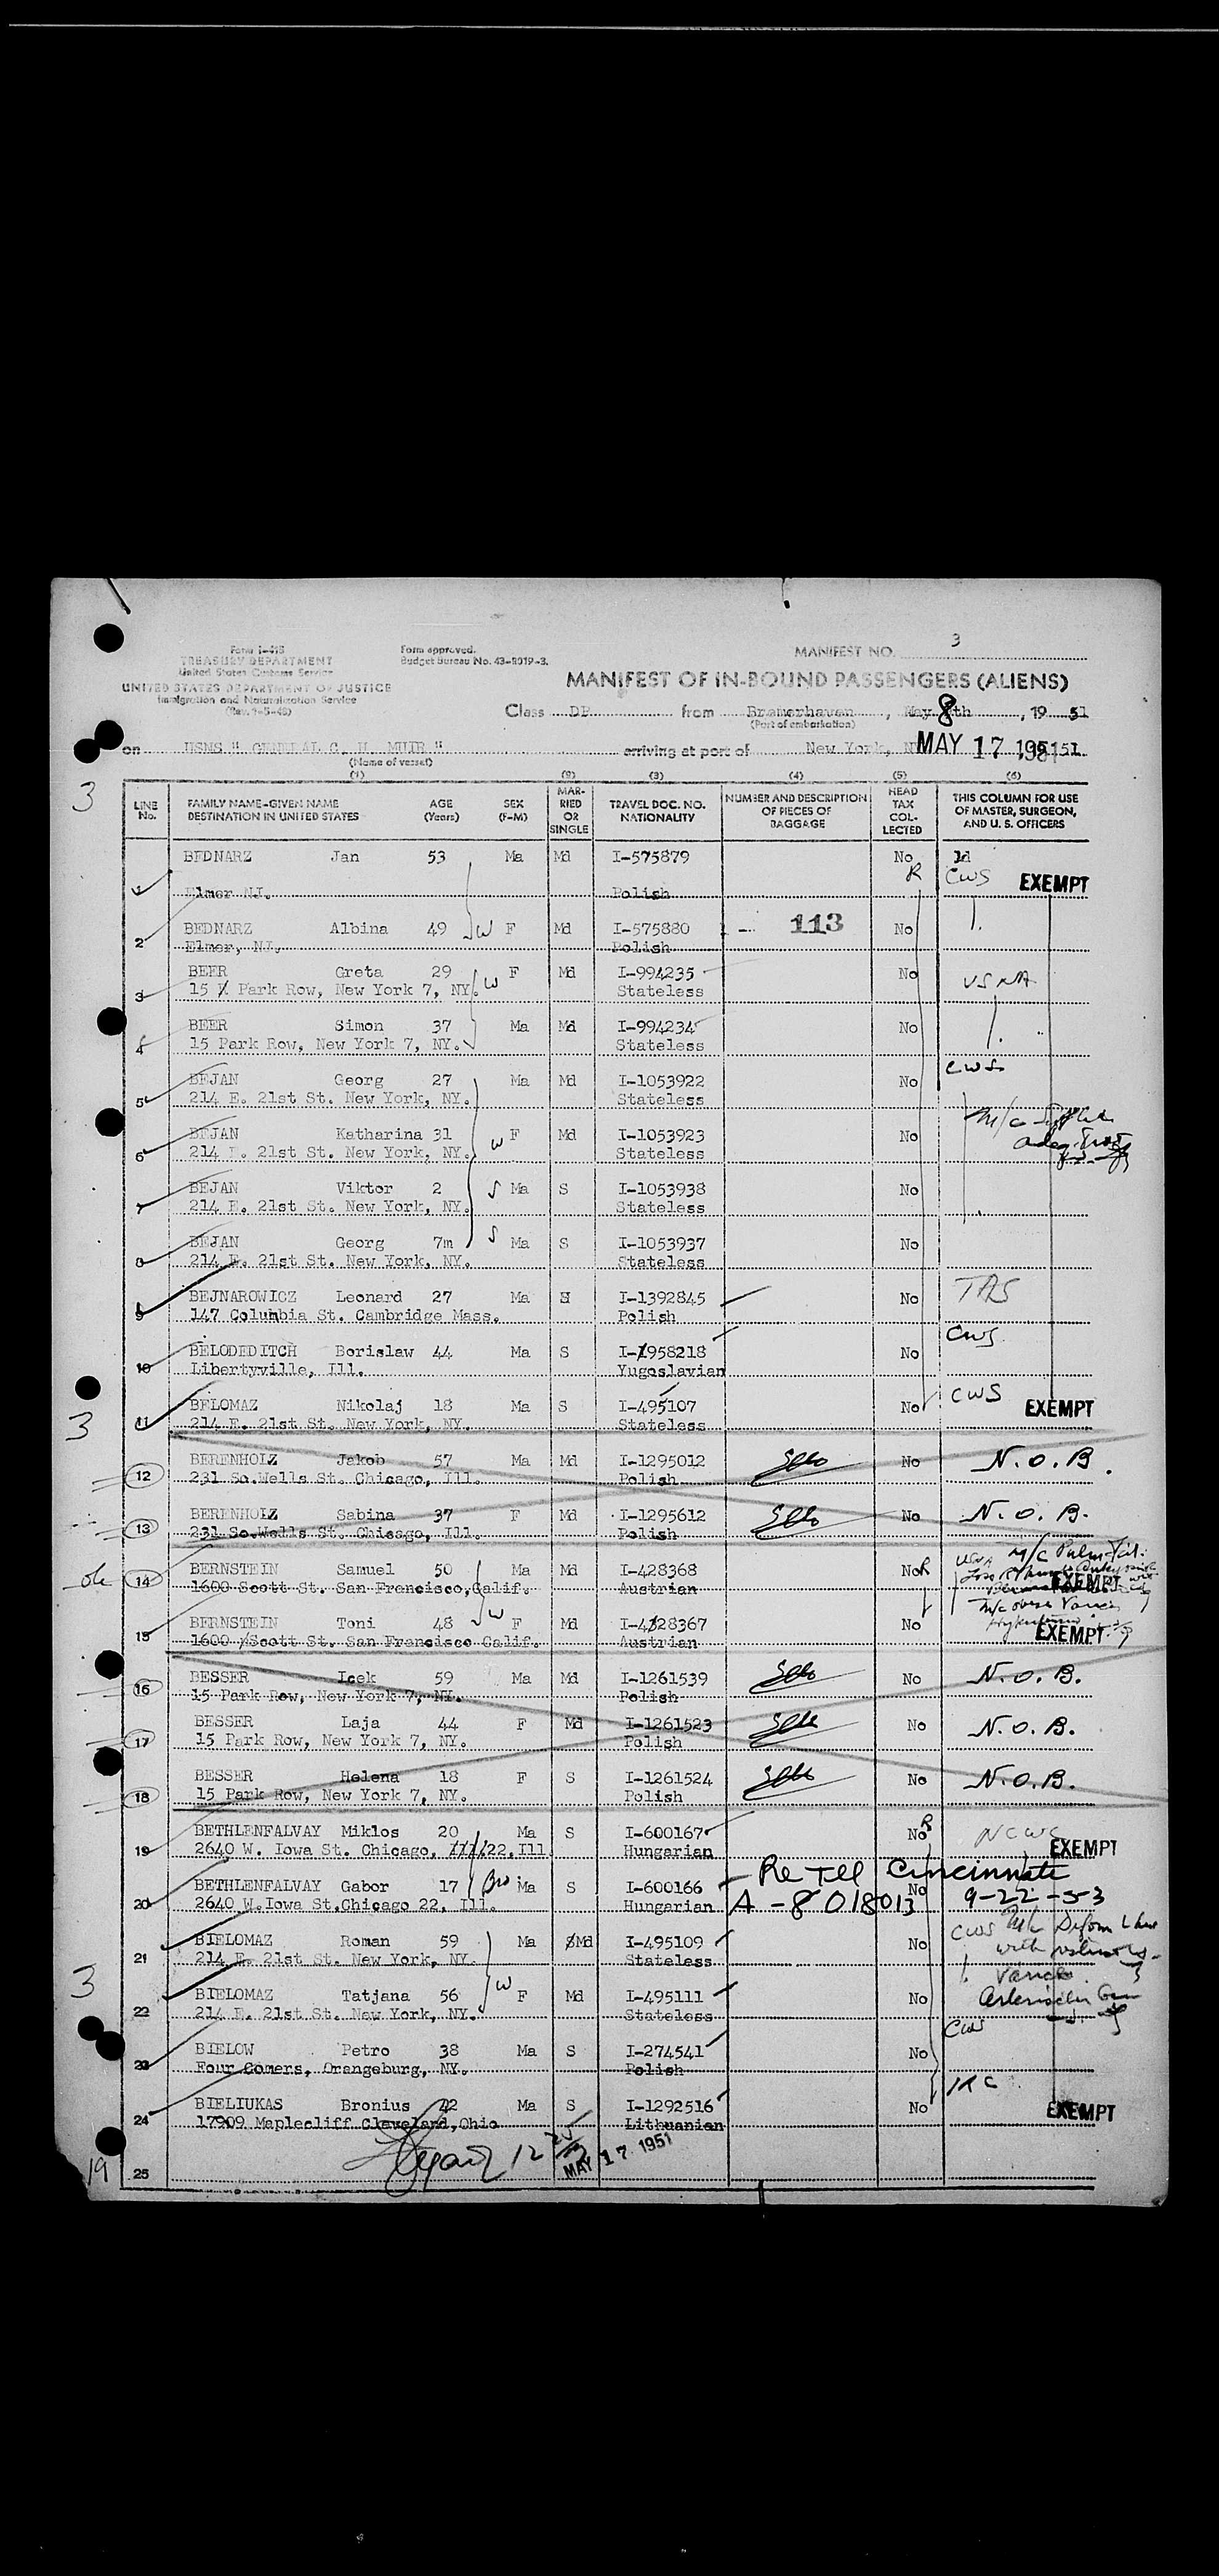 3
Form I-415
TREASURY DEPARTMENT
United States Customs Service
UNITED STATES DEPARTMENT OF JUSTICE
Immigration and Naturalization Service
Form approved.
Budget Bureau No. 43-R019-3.
MANIFEST NO. 3
MANIFEST OF IN-BOUND PASSENGERS (ALIENS)
Class DP from Bremerhaven, May 8th, 19 51
(Port of embarkation)
on USNS " GENERAL C. H. MUIR " arriving at port of New York, MAY 17 1951 51
(Name of vessel)
(1) (2) (3) (4) (5) (6)
LINE No. FAMILY NAME-GIVEN NAME DESTINATION IN UNITED STATES AGE (Years) SEX (F-M) MARRIED OR SINGLE TRAVEL DOC. NO. NATIONALITY NUMBER AND DESCRIPTION OF PIECES OF BAGGAGE HEAD TAX COLLECTED THIS COLUMN FOR USE OF MASTER, SURGEON, AND U. S. OFFICERS
BEDNARZ Jan 53 Ma Md I-575879 No R CWS EXEMPT
1 Elmer NJ. Polish
BEDNARZ Albina 49 W F Md I-575880 1 - 113 No
2 Elmer, NJ. Polish
BEER Greta 29 W F Md I-994235 No USNA
3 15 Park Row, New York 7, NY. Stateless
BEER Simon 37 Ma Md I-994234 No
4 15 Park Row, New York 7, NY. Stateless
BEJAN Georg 27 Ma Md I-1053922 No CWS
5 214 E. 21st St. New York, NY. Stateless
BEJAN Katharina 31 W F Md I-1053923 No
6 214 E. 21st St. New York, NY. Stateless
BEJAN Viktor 2 S Ma S I-1053938 No
7 214 E. 21st St. New York, NY. Stateless
BEJAN Georg 7m S Ma S I-1053937 No
8 214 E. 21st St. New York, NY. Stateless
BEJNAROWICZ Leonard 27 Ma I-1392845 No TAS
9 147 Columbia St. Cambridge Mass. Polish
BELODEDITCH Borislaw 44 Ma S I-958218 No CWS
10 Libertyville, Ill. Yugoslavian
BELOMAZ Nikolaj 18 Ma S I-495107 No CWS EXEMPT
3 11 214 E. 21st St. New York, NY. Stateless
BERENHOLZ Jakob 57 Ma Md I-1295012 No N.O.B.
12 231 So.Wells St. Chicago, Ill. Polish
BERENHOLZ Sabina 37 F Md I-1295612 No N.O.B.
13 231 So.Wells St. Chicago, Ill. Polish
BERNSTEIN Samuel 50 Ma Md I-428368 No R EXEMPT
ok 14 1600 Scott St. San Francisco, Calif. Austrian
BERNSTEIN Toni 48 W F Md I-428367 No EXEMPT
15 1600 Scott St. San Francisco Calif. Austrian
BESSER Icek 59 Ma Md I-1261539 No N.O.B.
16 15 Park Row, New York 7, NY. Polish
BESSER Laja 44 F Md I-1261523 No N.O.B.
17 15 Park Row, New York 7, NY. Polish
BESSER Helena 18 F S I-1261524 No N.O.B.
18 15 Park Row, New York 7, NY. Polish
BETHLENFALVAY Miklos 20 Ma S I-600167 No R NCWC EXEMPT
19 2640 W. Iowa St. Chicago, 22.Ill Hungarian
BETHLENFALVAY Gabor 17 Bro Ma S I-600166 No Re Till Cincinnati
20 2640 W.Iowa St.Chicago 22, Ill. Hungarian A-8 018013 9-22-53
BIELOMAZ Roman 59 Ma Md I-495109 No CWS
21 214 E. 21st St. New York, NY. Stateless
3
BIELOMAZ Tatjana 56 W F Md I-495111 No
22 214 E. 21st St. New York, NY. Stateless
BIELOW Petro 38 Ma S I-274541 No CWS
23 Four Corners, Orangeburg, NY. Polish
BIELIUKAS Bronius 42 Ma S I-1292516 No EXEMPT
24 17909 Maplecliff Cleveland,Ohio Lithuanian
25 MAY 17 1951
19